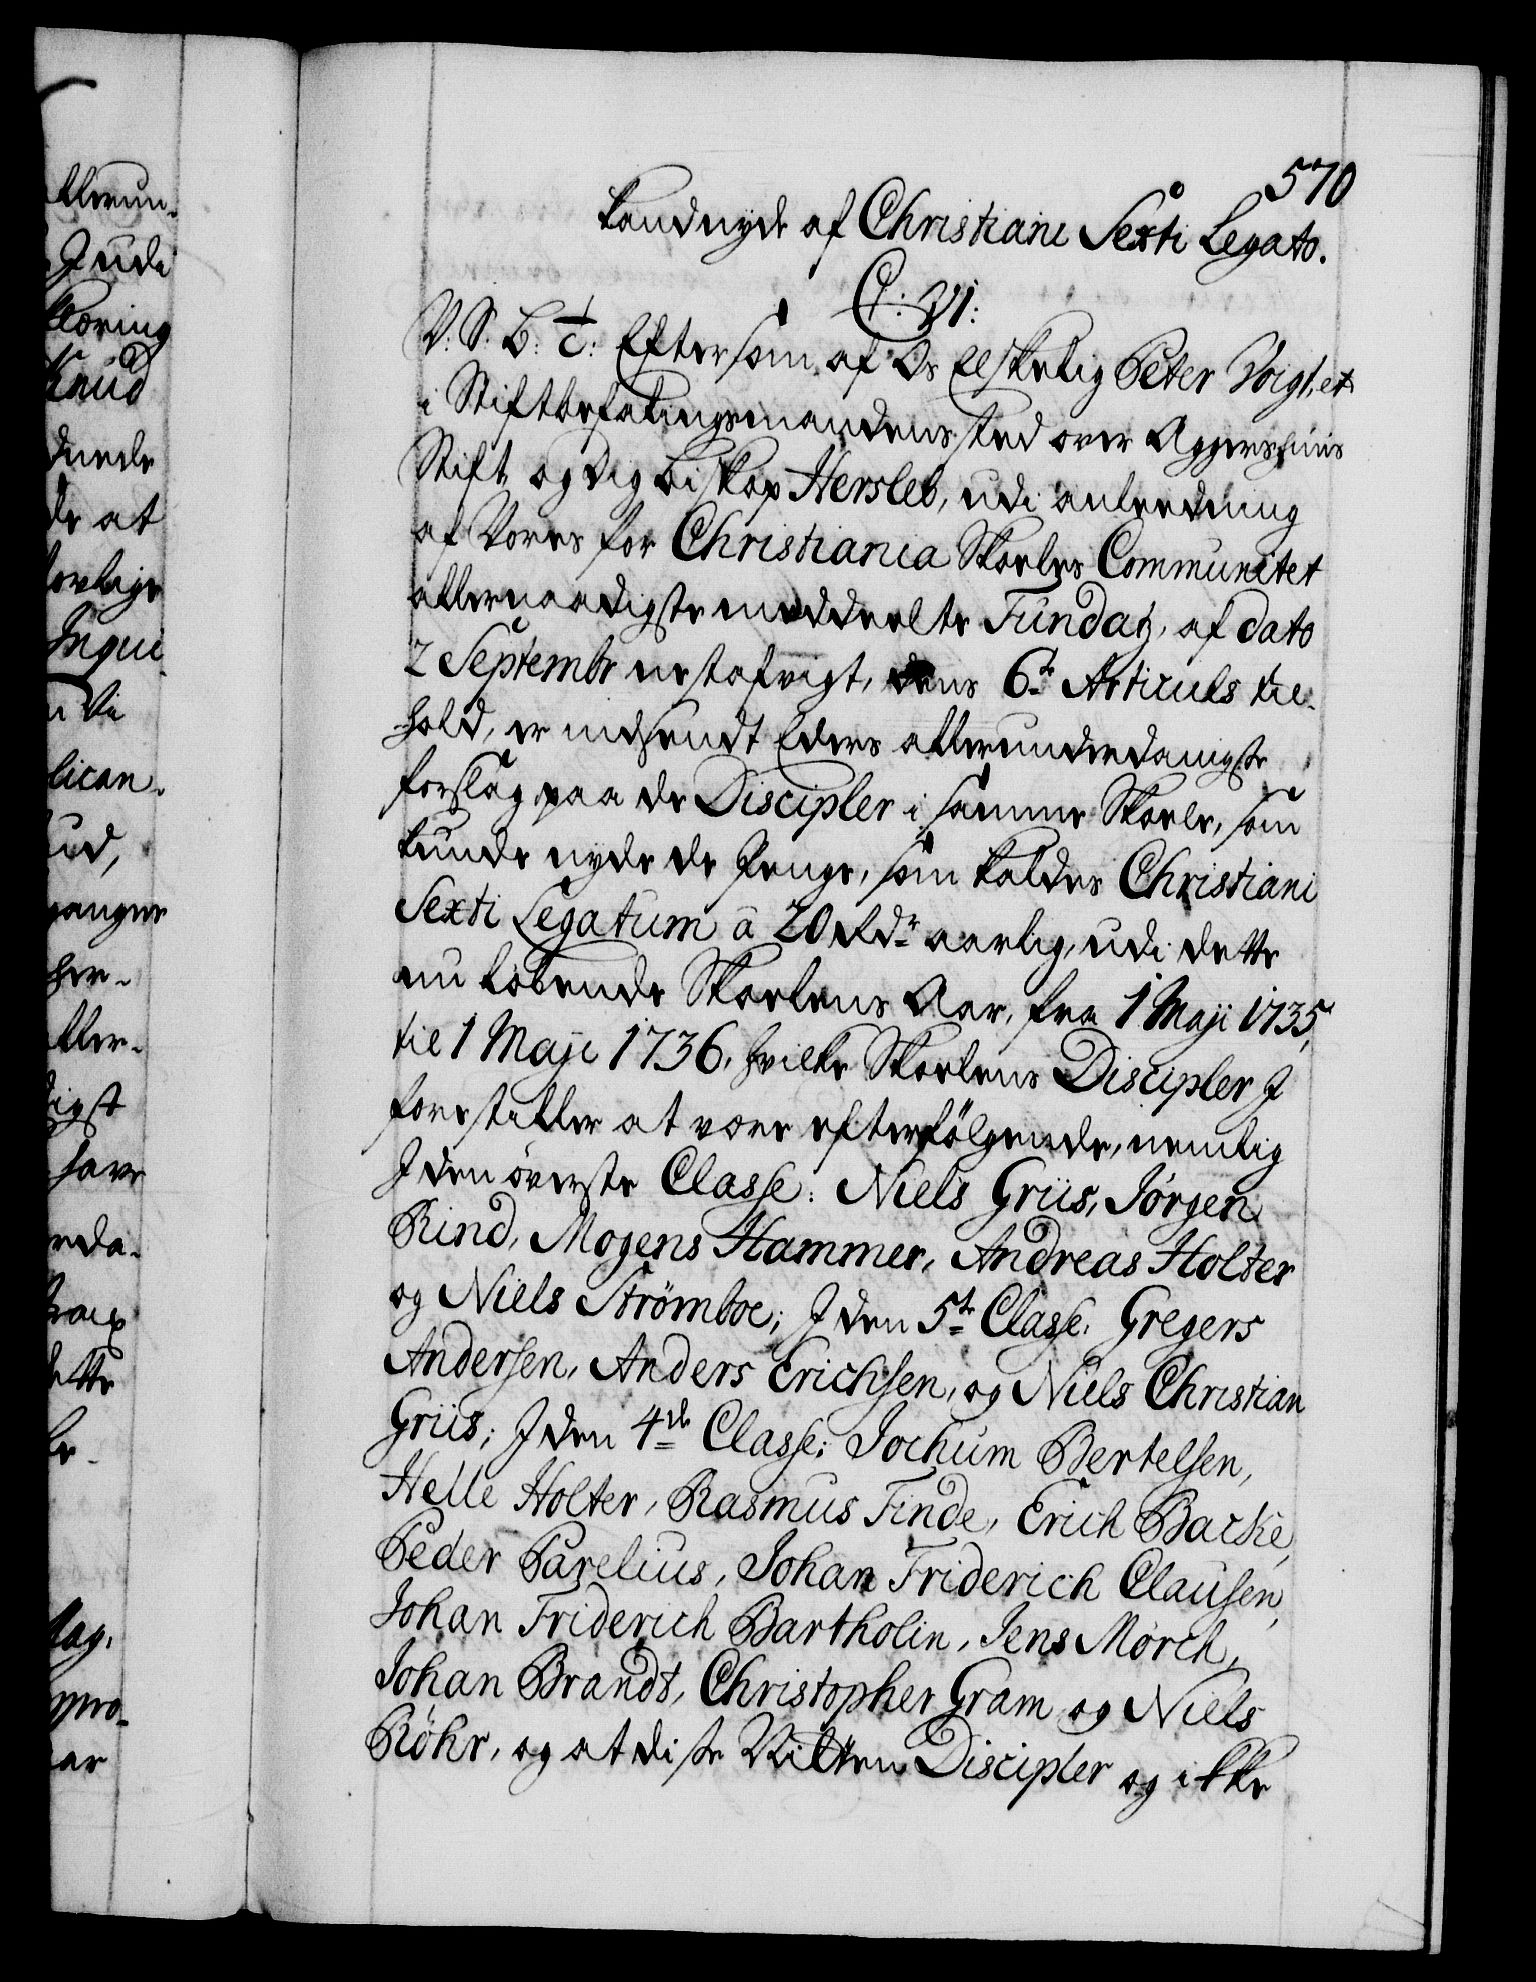 570
kand nyde af Christiani Sexti Legato.
C: VI:
V: S: B: &c: Eftersom af Os Elskelig Peter Vogt, et
i Stiftbefalingsmandens sted over Aggershuus
Stift, og dig biskop Hersleb, udi anleedning
af Vores for Christiania Skoeles Communitet
allernaadigste meddeelte Fundatz, af dato
2 Septembr nestafvigt, dens 6te Articuls til-
hold, er indsendt Eders allerunderdanigste
forslag paa de Discipler i samme Skoele, som
kunde nyde de Penge, som kaldes Christiani
Sexti Legatum à 20 Rdr aarlig, udi dette
nu løbende Skoelens Aar, fra 1 Maji 1735,
til 1 Maji 1736, hvilke Skoelens Discipler I
forestiller at være efterfölgende, nemlig
I den överste Classe: Niels Griis, Jørgen
Rind, Mogens Hammer, Andreas Holter
og Niels Strömboe; I den 5te Classe. Gregers
Andersen, Anders Erichsen, og Niels Christian
Griis; I den 4de Classe; Jochum Bertelsen,
Helle Holter, Rasmus Finde, Erich Backe,
Peder Parelius, Johan Friderich Clausen,
Johan Friderich Bartholin, Jens Mørch,
Johan Brandt, Christopher Gram og Niels
Röhr, og at disse Nitten Discipler og ikke
allerun-
I udi
klæring
Knud
de at
Inqui
Vi
lican-
ud,
ganger
her-
aller-
digst
have
dette
pro-
ar